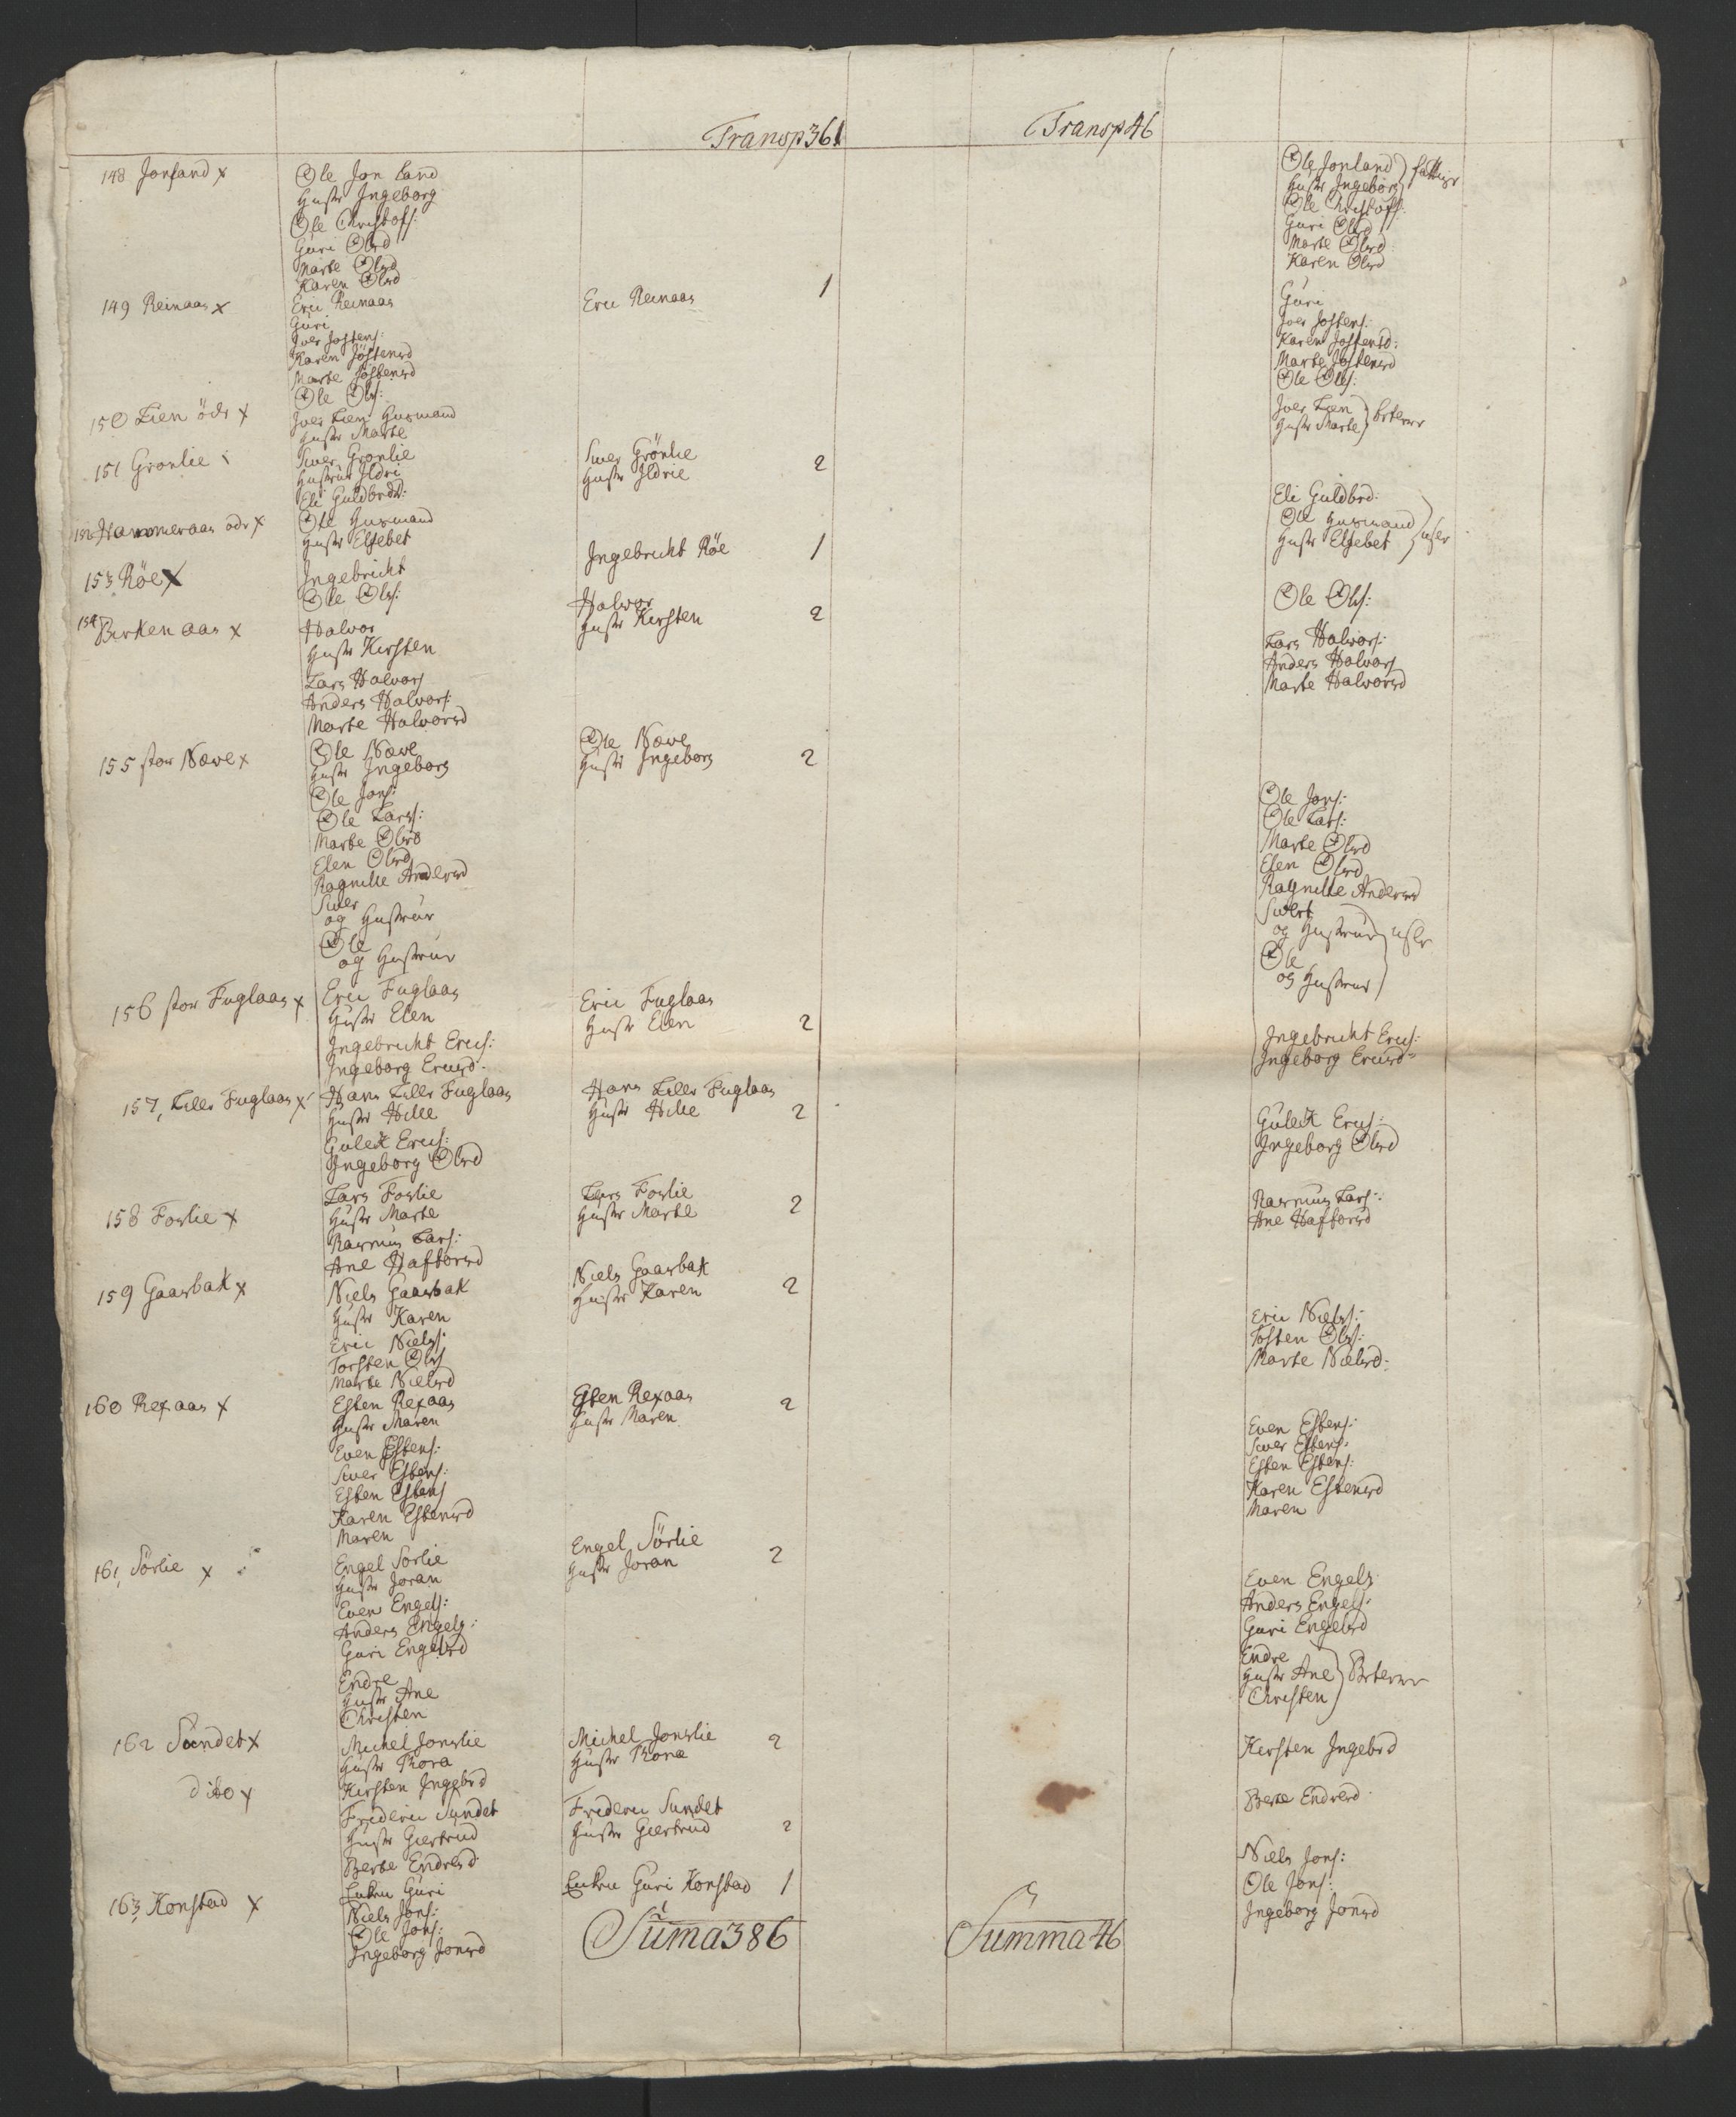 Transp 361 Transp 46
148 Jonsand x Ole Jon land Ole Jonland fattige
Hustr Ingeborg Hustr Ingeborg
Ole Christofs: Ole Christofs:
Guri Olsd Guri Olsd
Marte Olsd Marte Olsd
Karen Olsd Karen Olsd
149 Reinaas x Eric Reinaas Eric Reinaas 1
Guri Guri
Iver Jostens: Iver Jostens:
Karen Jöstensd Karen Jostensd:
Marte Jöstensd Marte Jostensd
Ole Ols: Ole Ols:
150 Lien öde x Iver Lien Husmand Iver Lien betlere
Hustr Marte Hustr Marte
151 Gronlie Siver Gronlie Siver Grönlie
Hustrue Ildri Hustr Ildrie 2
Eli Guldbrd: Eli Guldbrd:
152 Hammeraas öde x Ole Husmand Ole Husmand
Hustr Elsebet Hustr Elsebet
153 Röe x Ingebricht Ingebricht Röe 1
Ole Ols: Ole Ols:
154 Birkenaas x Halvor Halvor
Hustr Kirsten Hustr Kirsten 2
Lars Halvors Lars Halvors:
Anders Halvors: Anders Halvors
Marte Halvorsd Marte Halvorsd
155 stor Næve x Ole Næve Ole Næve
Hustr Ingeborg Hustr Ingeborg 2
Ole Jons: Ole Jons:
Ole Larss: Ole Lars:
Marte Olsd Marte Olsd
Elen Olsd Elen Olsd
Ragnille Andersd Ragnille Andersd
Siver Sivert
og Hustrue og Hustrue
Ole Ole
og Hustrue og Hustrue
156 stor Fuglaas x Eric Fuglaas Eric Fuglaas
Hustr Elen Hustr Elen 2
Ingebricht Erics: Ingebricht Erics:
Ingeborg Ericsd: Ingeborg Ericsd:
157, Lille Fuglaas x Hans Lille Fuglaas Hans Lille Fuglaas
Hustr Hille Hustr Hille 2
Gulek Erics: Gulek Erics:
Ingeborg Olsd Ingeborg Olsd
158 Foslie x Lars Foslie Lars Foslie
Hustr Marte Hustr Marte 2
Rasmus Lars: Rasmus Lars:
Ane Haftorsd Ane Haftorsd
159 Gaasbak x Niels Gaasbak Niels Gaasbak
Hustr Karen Hustr Karen 2
Eric Niels: Eric Niels:
Torsten Ols Tosten Ols:
Marte Nielsd Marte Nielsd:
160 Rexaas x Esten Rexaas Esten Rexaas
Hustr Maren Hustr Maren 2
Even Estens: Even Estens:
Siver Estens: Siver Estens:
Esten Estens Esten Estens:
Karen Estensd Karen Estensd
Maren Maren
161, Sörlie x Engel Sorlie Engel Sörlie
Hustr Joran Hustr Joran 2
Even Engels: Even Engels
Anders Engels: Anders Engels:
Guri Engelsd Guri Engelsd
Endre Endre
Hustr Ane Hustr Ane Betlere
Christen Christen
162 Sundet x Michel Jonslie Michel Jonslie 2
Hustr Thora Hustr Thora
Kirsten Ingebrd Kirsten Ingebrd
dito x Frideric Sundet Frideric Sundet
Hustr Giertrud Hustr Giertrud 2
Berte Endresd Berte Endresd
163, Konstad x Enken Guri Enken Guri Konstad 1
Niels Jons: Niels Jons:
Ole Jons: Ole Jons:
Ingeborg Jonsd Ingeborg Jonsd
Suma 386 Summa 46